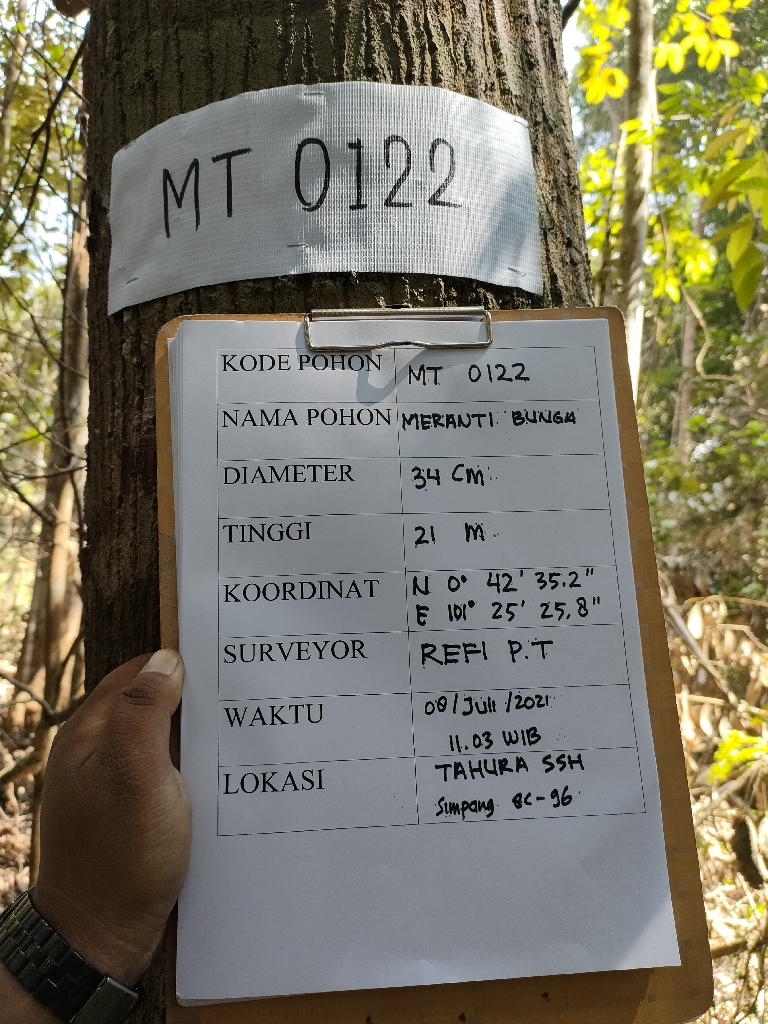 MT 0122
KODE POHON MT 0122
NAMA POHON MERANTI BUNGA
DIAMETER 34 Cm
TINGGI 21 M
KOORDINAT N 0° 42' 35.2"
E 101° 25' 25,8"
SURVEYOR REFI P.T
WAKTU 08/Juli/2021
11.03 WIB
LOKASI TAHURA SSH
Simpang 8C-96